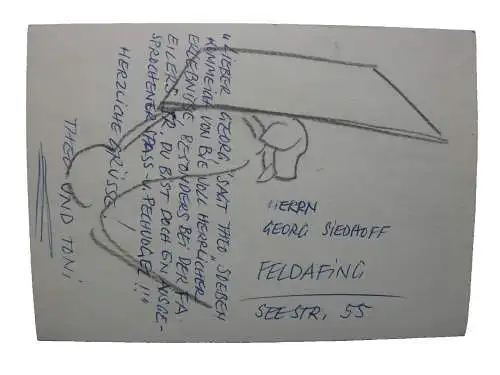 "LIEBER GEORG", SAGT THEO, "SOEBEN
KOMME ICH VON BIE VOLL HERRLICHER
ERLEBNISSE, BESONDERS BEI DER FA.
EILERS. DU BIST DOCH EIN AUSGE-
SPROCHENER SPASS- U. PECHVOGEL!!!"
HERZLICHE GRÜSSE
THEO UND TONI
HERRN
GEORG SIEDHOFF
FELDAFING
SEESTR. 55